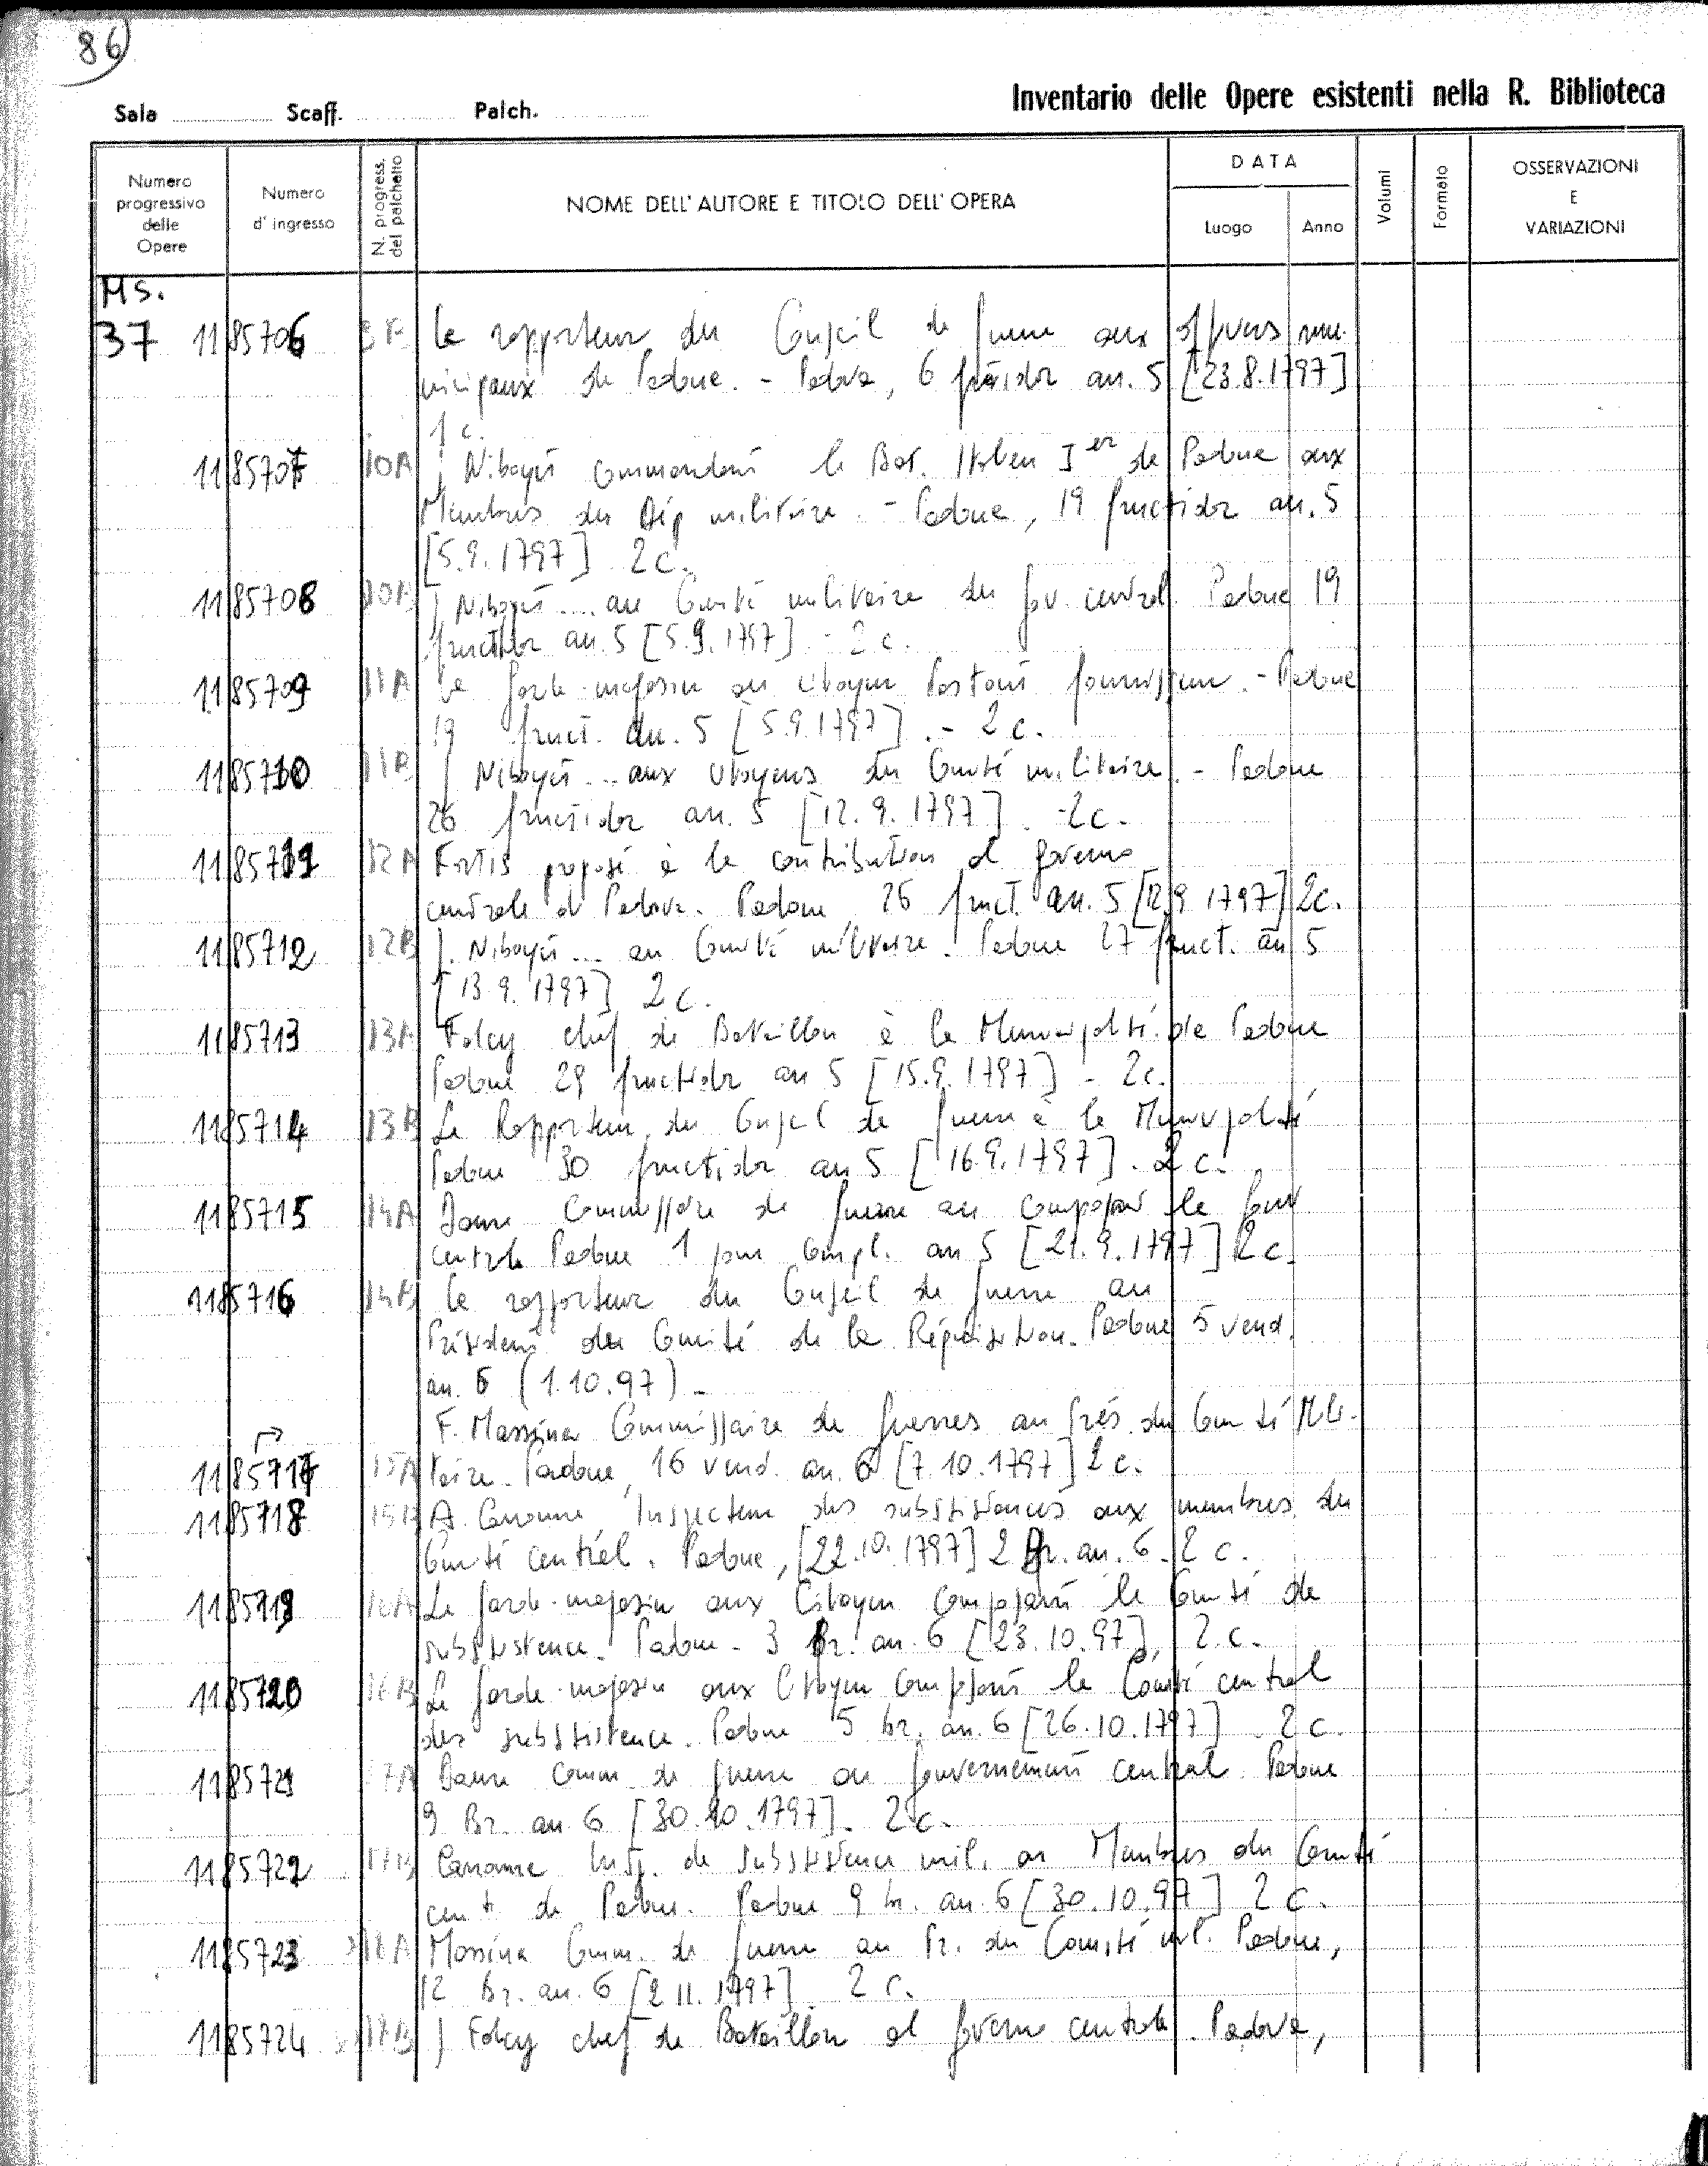 86
Inventario delle Opere esistenti nella R. Biblioteca
Sala Scaff. Palch.
Numero progressivo delle Opere
Numero d'ingresso
N. progress. del palchetto
NOME DELL'AUTORE E TITOLO DELL'OPERA
DATA
Luogo Anno
Volumi
Formato
OSSERVAZIONI E VARIAZIONI
Ms.
37 1185706 Le rapporteur du Conseil de guerre aux officiers mu-
nicipaux de Padoue. - Padova, 6 frutidor an. 5 [23.8.1797]
1 c.
1185707 10A J. Niboyet commandant le Bat. Italien Ier de Padoue aux
Membres du Dép militaire. - Padoue, 19 fructidor an. 5
[5.9.1797] 2 c.
1185708 10B J. Niboyet ... au Comité militaire du gov. central. Padoue 19
fructidor an. 5 [5.9.1797] - 2 c.
1185709 11A Le garde-magasin au citoyen fournisseur. - Padoue
19 fruct. an. 5 [5.9.1797]. - 2 c.
1185710 11B J Niboyet ... aux citoyens du Comité militaire. - Padoue
26 fructidor an. 5 [12.9.1797]. - 2 c.
1185711 12A Fortis proposé à la contribution al governo
centrale di Padova. Padoue 26 fruct. an. 5 [12.9.1797] 2 c.
1185712 12B J. Niboyet ... au Comité militaire. Padoue 27 fruct. an 5
[13.9.1797] 2 c.
1185713 13A Folcy chef de Bataillon à la Municipalité de Padoue
Padoue 29 fructidor an 5 [15.9.1797] - 2 c.
1185714 13B Le Rapporteur du Conseil de guerre à la Municipalité
Padoue 30 fructidor an 5 [16.9.1797]. 2 c.
1185715 14A Commissaire de guerre au composant le Gouv
centrale Padoue 1 jour compl. an 5 [21.9.1797] 2 c.
1185716 14B Le rapporteur du Conseil de guerre au
Président du Comité de la Réquisition. Padoue 5 vend.
an. 6 (1.10.97) -
F. Massina Commissaire de guerres au prés. du Comité Mili-
1185717 15A taire. Padoue, 16 vend. an. 6 [7.10.1797] 2 c.
1185718 15B A. Inspecteur des subsistances aux membres du
Comité central. Padoue, [22.10.1797] 2 Br. an. 6. 2 c.
1185719 16A Le garde-magasin aux Citoyen composant le Comité de
subsistence. Padoue - 3 Br. an. 6 [23.10.97], 2. c.
1185720 16B Le garde-magasin aux Citoyen composant le Comité central
des subsistence. Padoue 5 br. an. 6 [26.10.1797] 2 c.
1185721 17A Comm. de guerre au gouvernement central. Padoue
9 Br. an 6 [30.10.1797]. 2 c.
1185722 17B Insp. de subsistence mil. au Membres du Comité
cent. de Padoue. Padoue 9 br. an. 6 [30.10.97] 2 c.
1185723 18A Massina Comm. de guerre au Pr. du Comité mil. Padoue,
12 Br. an. 6 [2 11. 1797]. 2 c.
1185724 J Folcy chef de Bataillon al governo centrale. Padova,